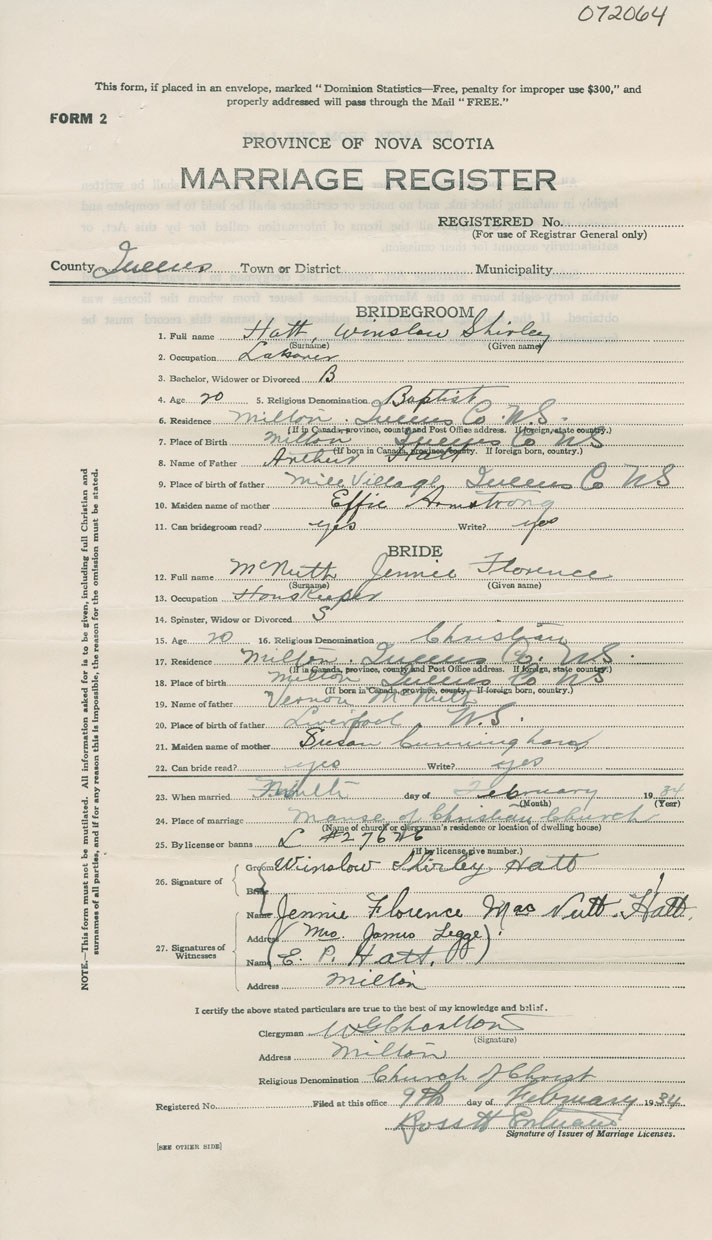 072064
This form, if placed in an envelope, marked "Dominion Statistics—Free, penalty for improper use $300," and
properly addressed will pass through the Mail "FREE."
FORM 2
PROVINCE OF NOVA SCOTIA
MARRIAGE REGISTER
REGISTERED No.
(For use of Registrar General only)
County Queens Town or District Municipality
BRIDEGROOM
1. Full name Hatt, Winslow Shirley
(Surname) (Given name)
2. Occupation Labourer
3. Bachelor, Widower or Divorced B
4. Age 20 5. Religious Denomination Baptist
6. Residence Milton Queens Co. N.S.
(If in Canada, province, county and Post Office address. If foreign, state country.)
7. Place of Birth Milton Queens Co NS
(If born in Canada, province, county. If foreign born, country.)
8. Name of Father Arthur Hatt
9. Place of birth of father Mill Village Queens Co NS
10. Maiden name of mother Effie Armstrong
11. Can bridegroom read? yes Write? yes
BRIDE
12. Full name McNutt Jennie Florence
(Surname) (Given name)
13. Occupation HousKeeper
14. Spinster, Widow or Divorced S
15. Age 20 16. Religious Denomination Christian
17. Residence Milton Queens Co. N.S.
(If in Canada, province, county and Post Office address. If foreign, state country.)
18. Place of birth Milton Queens Co NS
(If born in Canada, province, county. If foreign born, country.)
19. Name of father Vernon McNutt
20. Place of birth of father Liverpool N.S.
21. Maiden name of mother Susan Cunningham
22. Can bride read? yes Write? yes
23. When married day of February 1934
(Month) (Year)
24. Place of marriage Manse of Christian Church
(Name of church or clergyman's residence or location of dwelling house)
25. By license or banns L #27626
(If by license, give number.)
26. Signature of Groom Winslow Shirley Hatt
Bride
Name Jennie Florence Mac Nutt. Hatt.
Address (Mrs. James Legge)
27. Signatures of Witnesses
Name (E. P. Hatt.)
Address Milton
I certify the above stated particulars are true to the best of my knowledge and belief.
Clergyman W G Charlton
(Signature)
Address Milton
Religious Denomination Church of Christ
Registered No. Filed at this office 9th day of February 1934
Ross H
Signature of Issuer of Marriage Licenses.
[SEE OTHER SIDE]
NOTE.—This form must not be mutilated. All information asked for is to be given, including full Christian and
surnames of all parties, and if for any reason this is impossible, the reason for the omission must be stated.